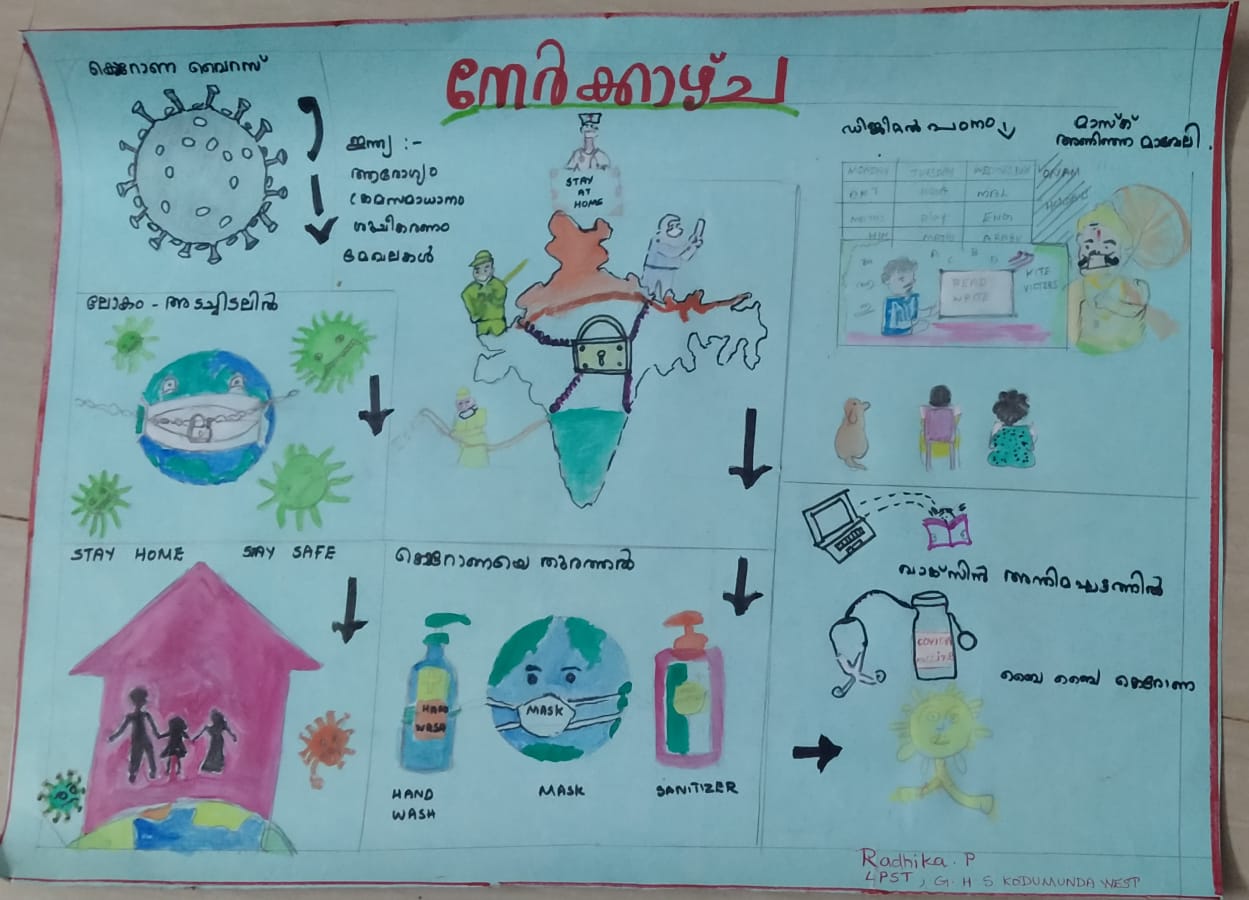 നേർക്കാഴ്ച
കൊറോണ വൈറസ്
ഇന്ത്യ :-
ആരോഗ്യം
ക്രമസമാധാനം
ശുചീകരണം
മേഖലകൾ
STAY
AT
HOME
ഡിജിറ്റൽ പഠനം
മാസ്ക്
അണിഞ്ഞ മാവേലി.
MONDAY TUESDAY WEDNESDAY
ART HINDI MAL
MATHS PLAY ENG
HIN MATHS ARABIC
ONAM
HOLIDAY
A B C D
READ
WRITE
KITE
VICTERS
ലോകം - അടച്ചിടലിൽ
STAY HOME STAY SAFE
കൊറോണയെ തുരത്താൻ
HAND
WASH
MASK
HAND
WASH
MASK
SANITIZER
വാക്സിൻ അന്തിമഘട്ടത്തിൽ
COVID
VACCINE
ബൈ ബൈ കൊറോണ
Radhika. P
LPST, G. H S KODUMUNDA WEST